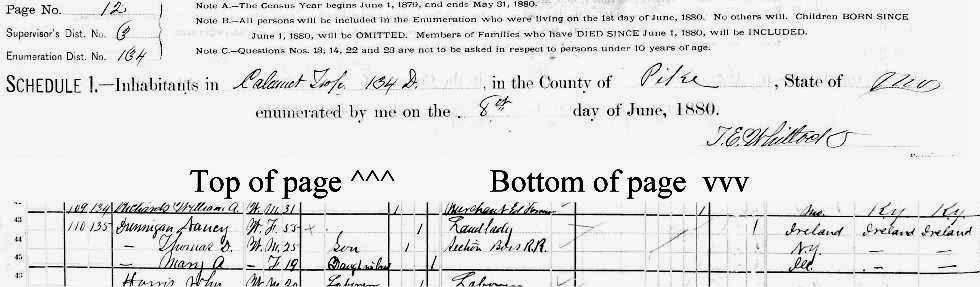 Page No. 12
Supervisor's Dist. No. 6
Enumeration Dist. No. 134
Note A.—The Census Year begins June 1, 1879, and ends May 31, 1880.
Note B.—All persons will be included in the Enumeration who were living on the 1st day of June, 1880. No others will. Children BORN SINCE
June 1, 1880, will be OMITTED. Members of Families who have DIED SINCE June 1, 1880, will be INCLUDED.
Note C.—Questions Nos. 13, 14, 22 and 23 are not to be asked in respect to persons under 10 years of age.
SCHEDULE 1.—Inhabitants in Calumet Twp. 134 D., in the County of Pike, State of Mo
enumerated by me on the 8th day of June, 1880.
Top of page ^^^ Bottom of page vvv
109 134 Richards William A. W. M. 31 1 Merchant 1 Mo. Ky Ky
43 110 135 Dunnigan Nancy W. F. 55 1 Landlady 1 Ireland Ireland Ireland
44 — Thomas D. W. M. 25 Son 1 Section Boss R.R. N.Y. — —
45 — Mary A — F 19 Daughter 1 Ill. — —
Harris John W. M. Laborer Laborer